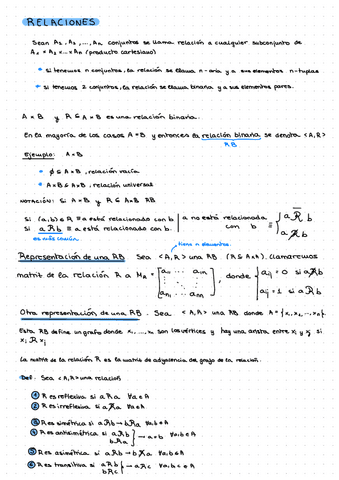 RELACIONES
Sean A₁, A₂, ..., Aₙ conjuntos se llama relación a cualquier subconjunto de
A₁ × A₂ × ... × Aₙ (producto cartesiano)
• Si tenemos n conjuntos, la relación se llama n-aria y a sus elementos n-tuplas
• Si tenemos 2 conjuntos, la relación se llama binaria y a sus elementos pares.
A × B y R ⊆ A × B es una relación binaria.
En la mayoría de los casos A = B y entonces la relación binaria se denota <A, R>
RB
Ejemplo: A × B
• ∅ ⊆ A × B, relación vacía
• A × B ⊆ A × B, relación universal
NOTACIÓN: Si A × B y R ⊆ A × B RB
Si (a,b) ∈ R ≡ a está relacionado con b | a no está relacionada con b ≡ { a R̅ b
Si a R b ≡ a está relacionado con b. a R̸ b
es más común
tiene n elementos.
Representación de una RB Sea <A, R> una RB (R ⊆ A × A), llamaremos
matriz de la relación R a M_R = [a₁₁ ... a₁ₙ ⋮ ⋮ aₙ₁ ... aₙₙ], donde { aᵢⱼ = 0 si a R̸ b
aᵢⱼ = 1 si a R b
Otra representación de una RB. Sea <A, R> una RB donde A = {x₁, x₂, ..., xₙ}.
Esta RB define un grafo donde x₁, ..., xₙ son los vértices y hay una arista entre xᵢ y xⱼ si
xᵢ R xⱼ
La matriz de la relación R es la matriz de adyacencia del grafo de la relación.
Def. Sea <A, R> una relación
① R es reflexiva si a R a ∀a ∈ A
② R es irreflexiva si a R̸ a ∀a ∈ A
③ R es simétrica si a R b → b R a ∀a,b ∈ A
④ R es antisimétrica si a R b
b R a } → a = b ∀a,b ∈ A
⑤ R es asimétrica si a R b → b R̸ a ∀a,b ∈ A
⑥ R es transitiva si a R b
b R c } → a R c ∀a,b,c ∈ A